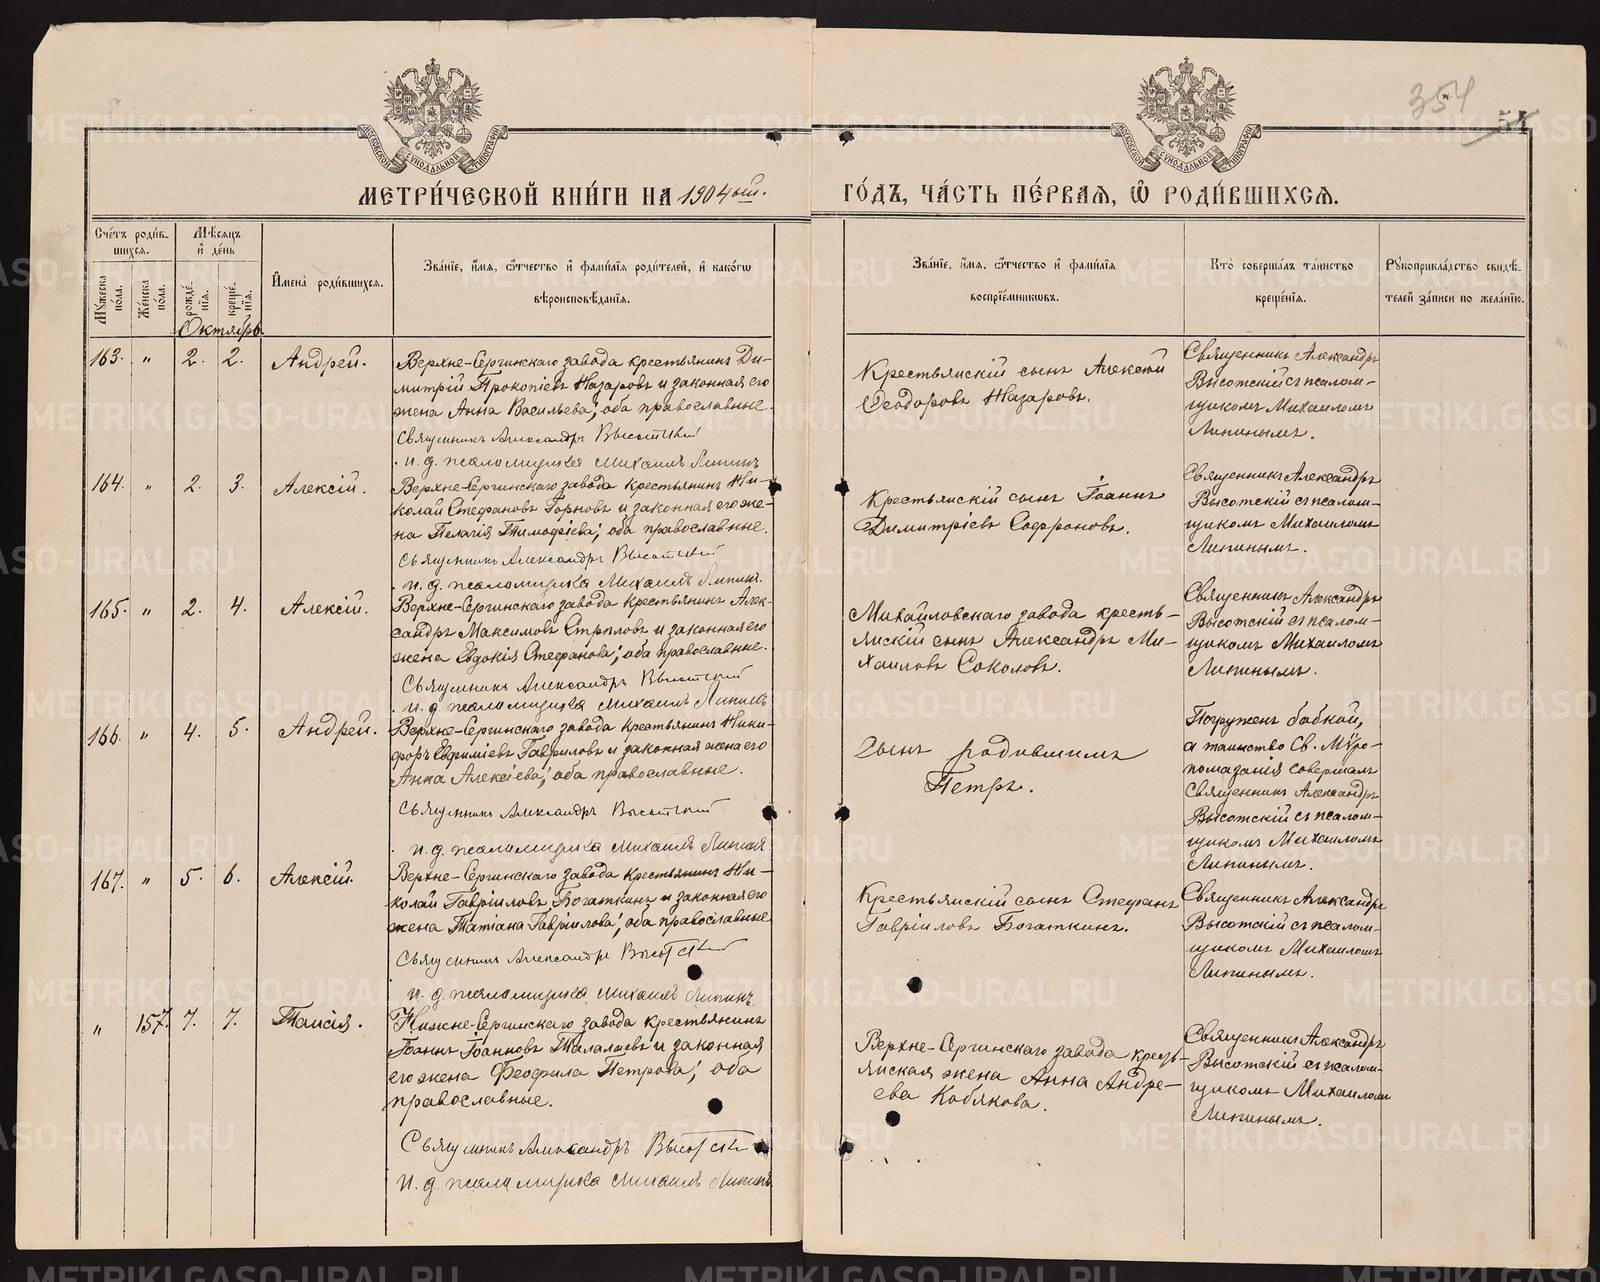 354
МЕТРИ́ЧЕСКОЙ КНИ́ГИ НА 1904ой.
ГО́ДЪ, ЧА́СТЬ ПЕ́РВАЯ, Ѡ҆ РОДИ́ВШИХСЯ.
Сче́тъ роди́в-
шихся.
Мꙋ́жеска по́ла.
Же́нска по́ла.
Мѣ́сяцъ
и҆ де́нь
рожде́нїя.
креще́нїя.
И҆мена̀ роди́вшихся.
Зва́нїе, и҆́мя, ѻ҆́тчество и҆ фами́лїя роди́телей, и҆ како́гѡ
вѣроисповѣ́данїя.
Зва́нїе, и҆́мя, ѻ҆́тчество и҆ фами́лїя
воспрїе́мникѡвъ.
Кто̀ соверша́лъ та́инство
креще́нїя.
Рꙋкоприкла́дство свидѣ́-
телей за́писи по жела́нїю.
Октябрь
163. " 2. 2. Андрей.
Верхне-Сергинскаго завода крестьянинъ Ди-
митрій Прокопіевъ Назаровъ и законная его
жена Анна Васильева; оба православные.
Священникъ Александръ Высотскій
и. д. псаломщика Михаилъ Липинъ
Крестьянскій сынъ Алексѣй
Ѳеодоровъ Назаровъ.
Священникъ Александръ
Высотскій съ псалом-
щикомъ Михаиломъ
Липинымъ.
164. " 2. 3. Алексій.
Верхне-Сергинскаго завода крестьянинъ Ни-
колай Стефановъ Горновъ и законная его же-
на Пелагія Тимофіева; оба православные.
Священникъ Александръ Высотскій
и. д. псаломщика Михаилъ Липинъ.
Крестьянскій сынъ Іоаннъ
Димитріевъ Софроновъ.
Священникъ Александръ
Высотскій съ псалом-
щикомъ Михаиломъ
Липинымъ.
165. " 2. 4. Алексій.
Верхне-Сергинскаго завода крестьянинъ Алек-
сандръ Максимовъ Стрѣловъ и законная его
жена Евдокія Стефанова; оба православные.
Священникъ Александръ Высотскій
и. д. псаломщика Михаилъ Липинъ
Михайловскаго завода кресть-
янскій сынъ Александръ Ми-
хаиловъ Соколовъ.
Священникъ Александръ
Высотскій съ псалом-
щикомъ Михаиломъ
Липинымъ.
166. " 4. 5. Андрей.
Верхне-Сергинскаго завода крестьянинъ Ники-
форъ Евфиміевъ Гавриловъ и законная жена его
Анна Алексіева; оба православные.
Священникъ Александръ Высотскій
и. д. псаломщика Михаилъ Липинъ
Сынъ родившимъ
Петръ.
Погруженъ бабкой,
а таинство Св. Мѵро-
помазанія совершалъ
Священникъ Александръ
Высотскій съ псалом-
щикомъ Михаиломъ
Липинымъ.
167. " 5. 6. Алексій.
Верхне-Сергинскаго завода крестьянинъ Ни-
колай Гавріиловъ Богаткинъ и законная его
жена Татіана Гавріилова; оба православные
Священникъ Александръ Высотскій
и. д. псаломщика Михаилъ Липинъ.
Крестьянскій сынъ Стефанъ
Гавріиловъ Богаткинъ.
Священникъ Александръ
Высотскій съ псалом-
щикомъ Михаиломъ
Липинымъ.
" 157. 7. 7. Таисія.
Нижне-Сергинскаго завода крестьянинъ
Іоаннъ Іоанновъ Талалаевъ и законная
его жена Феофила Петрова; оба
православные.
Священникъ Александръ Высотскій
и. д. псаломщика Михаилъ Липинъ
Верхне-Сергинскаго завода кресть-
янская жена Анна Андре-
ева Кобякова.
Священникъ Александръ
Высотскій съ псалом-
щикомъ Михаиломъ
Липинымъ.